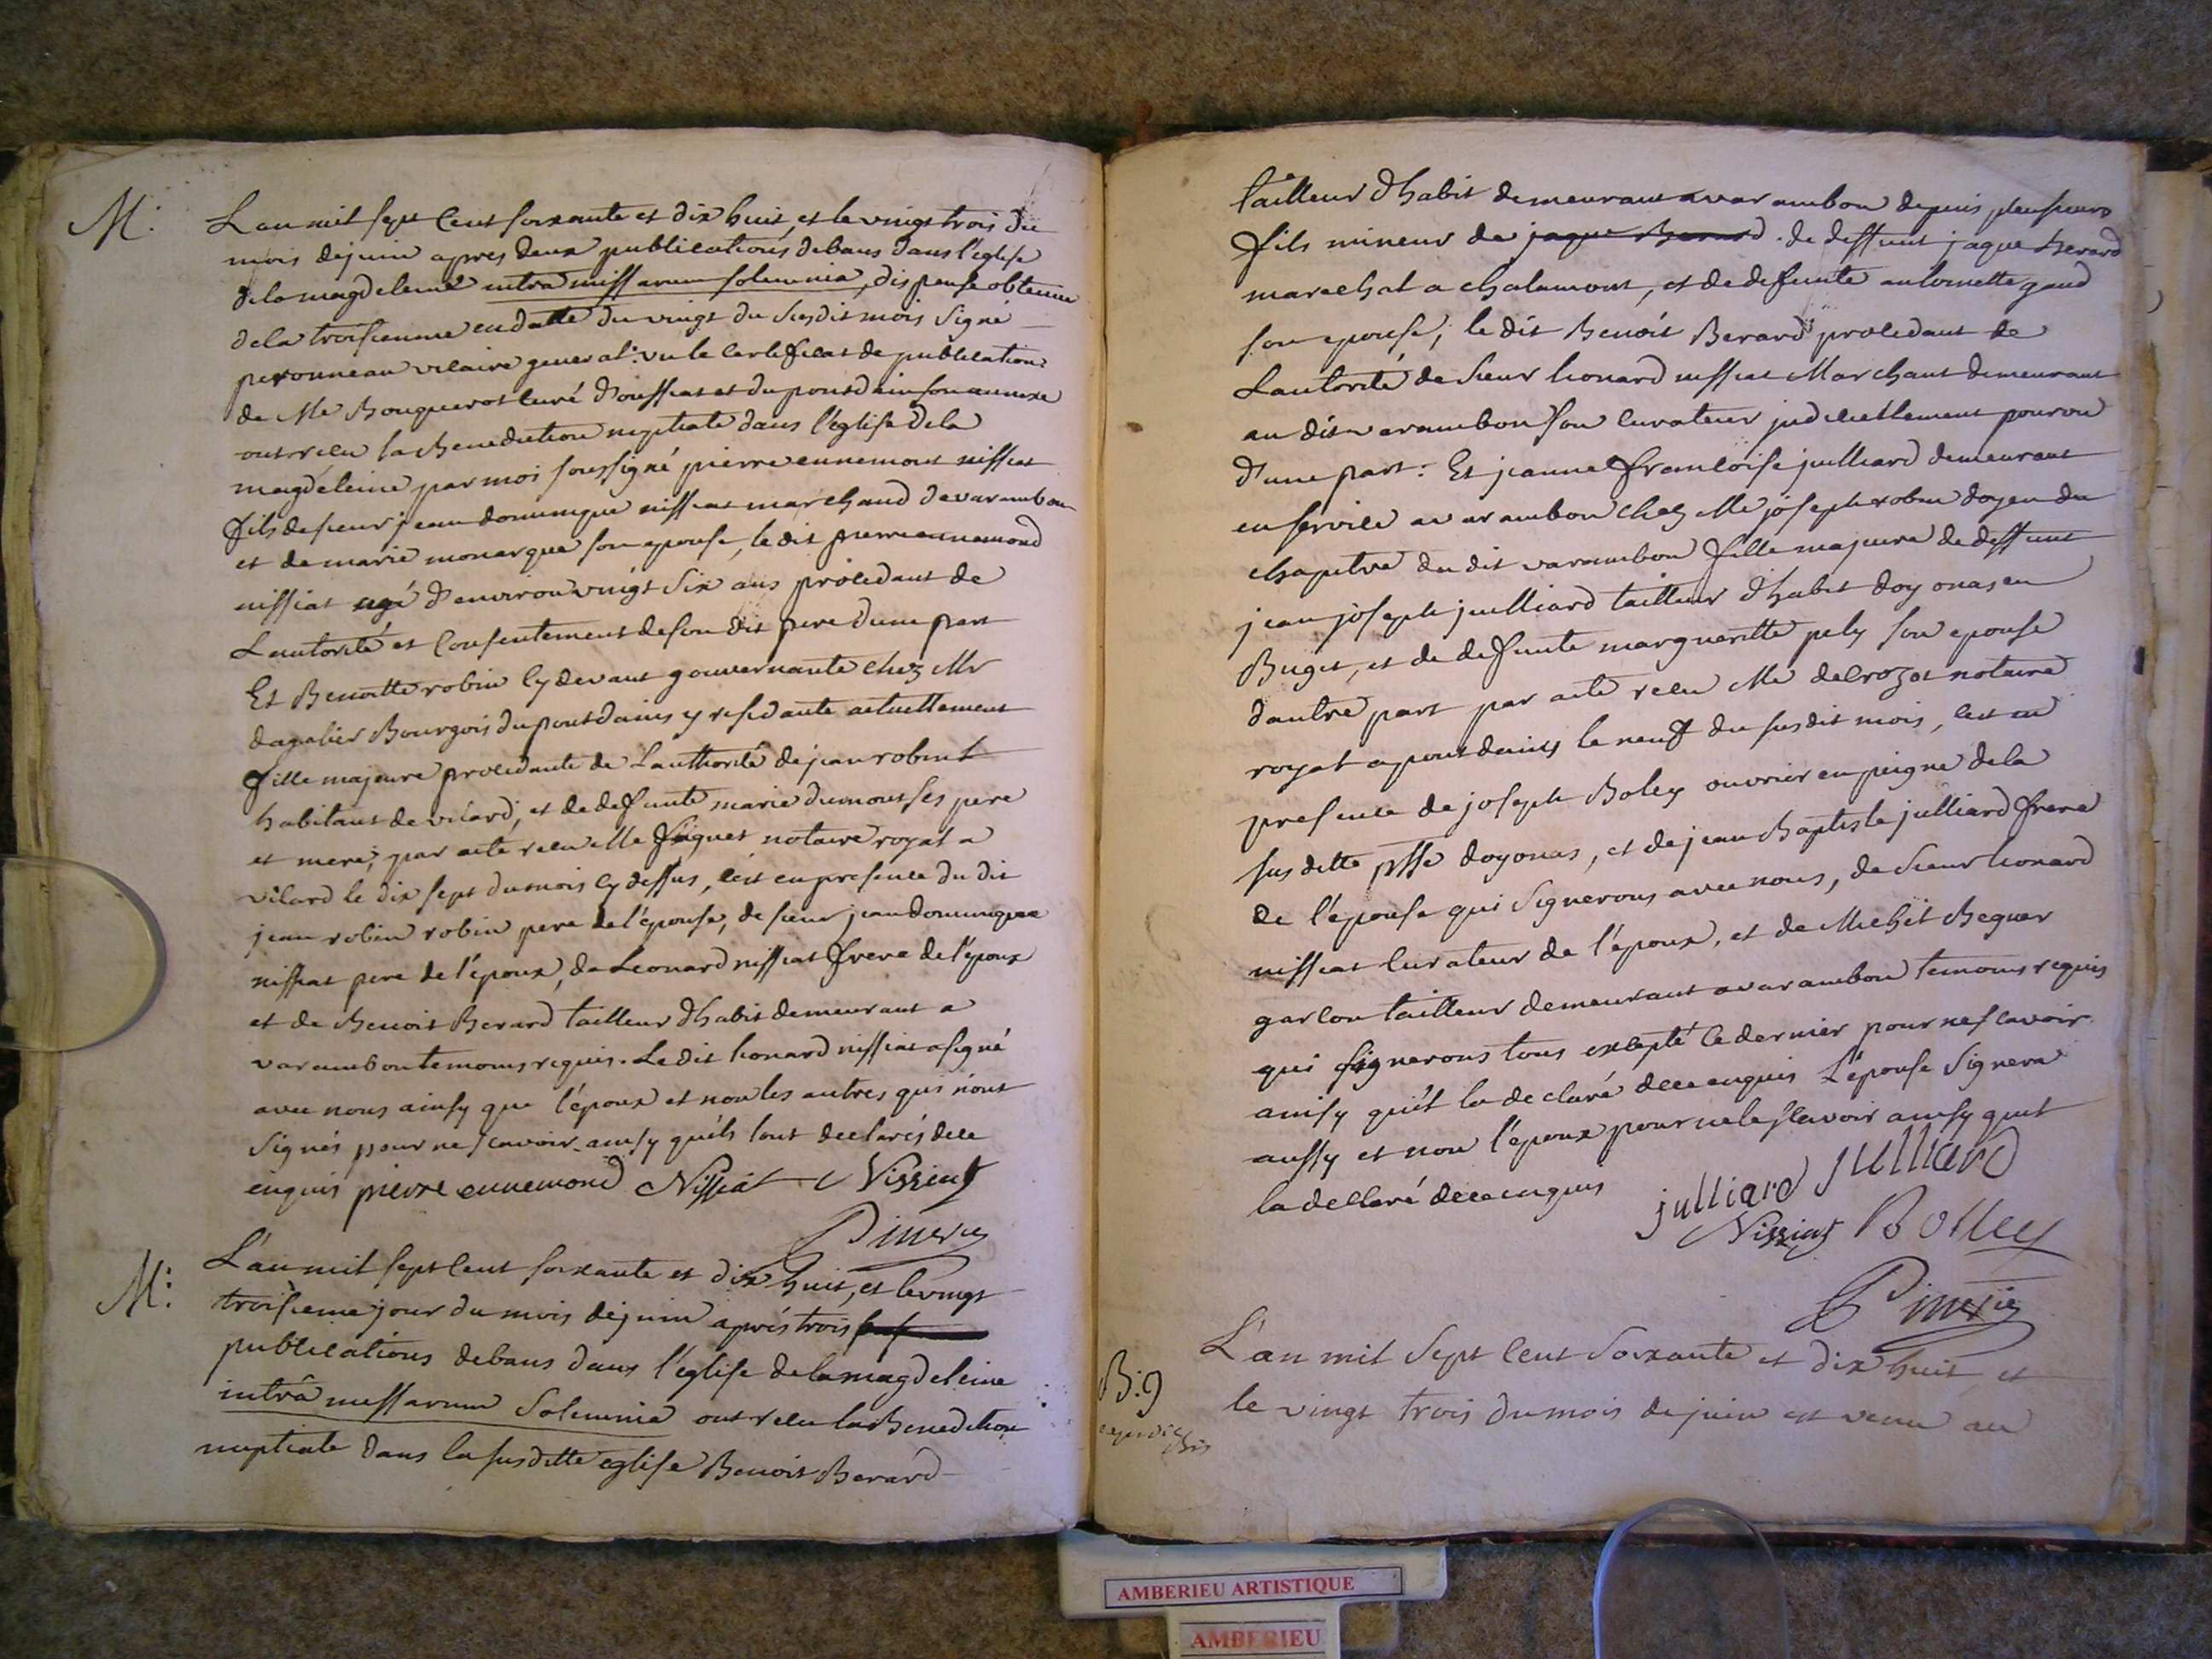 M:
L'an mil sept cent soixante et dix huit, et le vingt trois du
mois de juin apres deux publications de bans dans l'église
de la magdeleine intra missarum solemnia, dispense obtenue
de la troisieme en datte du vingt du susdit mois signé
peronneau vicaire general: vu le certificat de publications
de Me Bouquerot curé d'oussiat et du pont dain son annexe
ont recu la Benediction nuptiale dans l'église de la
magdeleine par moi soussigné pierre ennemont nissiat
fils de sieur jean dominique nissiat marchand de varambon
et de marie monarque son epouse, le dit pierre ennemond
nissiat agé d'environ vingt six ans procedant de
L'autorité et consentement de son dit pere d'une part
Et Benoitte robin cy devant gouvernante chez Mr
dagalier Bourgois du pont dains y residante actuellement
fille majeure procedante de L'authorité de jean robin
habitant de vilard, et de defunte marie dumont ses pere
et mere, par acte recu Me notaire royal a
vilard le dix sept du mois cy dessus, c'est en presence du dit
jean robin robin pere de l'épouse, de sieur jean dominique
nissiat pere de l'époux, de Leonard nissiat frere de l'époux
et de Benoit Berard tailleur d'habit demeurant a
varambon temoins requis. Le dit leonard nissiat a signé
avec nous ainsy que l'époux et non les autres qui n'ont
signés pour ne scavoir ainsy qu'ils l'ont declarés de ce
enquis pierre ennemond Nissiat Nissiat
Pinerie
M:
L'an mil sept cent soixante et dix huit, et le vingt
troisieme jour du mois de juin aprés trois
publications de bans dans l'église de la magdeleine
intrâ missarum Solemnia ont recu la Benediction
nuptiale dans la susditte église Benoit Berard
tailleur d'habit demeurant a varambon depuis plusieurs
fils mineur de jaque Berard. de deffunt jaque Berard
marechal a chalamont, et de defunte antoinette gaud
son epouse, le dit Benoit Berard procedant de
L'autorité de sieur leonard nissiat Marchant demeurant
au dit varambon son curateur judiciellement pourvu
d'une part: Et jeanne francoise julliard demeurant
en service a varambon chez Me joseph robin doyen du
chapitre du dit varambon fille majeure de deffunt
jean joseph juilliard tailleur d'habit doyonas en
Buget, et de defunte margueritte pely son epouse
d'autre part par acte recu Me delrozat notaire
royal a pont dains le neuf du susdit mois, c'est en
presence de joseph Boley ouvrier en peigne de la
susditte psse doyonas, et de jean Baptiste julliard frere
de l'épouse qui signerons avec nous, de sieur leonard
nissiat curateur de l'époux, et de Michel Beguer
garcon tailleur demeurant a varambon temoins requis
qui signerons tous excepté le dernier pour ne scavoir
ainsy qu'il l'a declaré de ce enquis L'épouse signera
aussy et non l'époux pour ne le scavoir ainsy qu'il
l'a declaré de ce enquis julliard julliard
Nissiat Bolley
Pinerie
B:9
L'an mil sept cent soixante et dix huit et
le vingt trois du mois de juin est venu au
AMBERIEU ARTISTIQUE
AMBERIEU